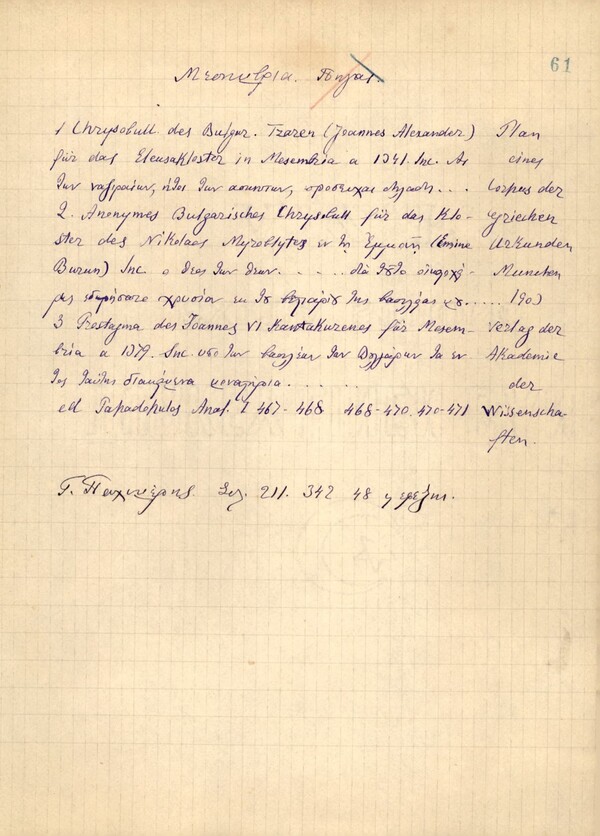 61
Μεσημβρια. Πηγαι.
1 Chrysobull des Bulgar. Tzaren (Joannes Alexander)
für das Eleusakloster in Mesembria a 1341. Inc. Ac
των ναζιραίων, ήτοι των ασκητων, προσευχαι
2. Anonymes Bulgarisches Chrysobull für das Klo-
ster des Nikolaos Myroblytes εν τη Εμμονη (Emine
Burun) Inc. ο θεος των θεων. . . . . δια τουτο
χρυσόν εκ του της
3 Prostagma des Joannes VI Kantakuzenos für Mesem-
bria a 1379. Inc. υπο των βασιλέων των Βουλγάρων τα εν-
τος ταύτης διακείμενα μοναστήρια. . . . . .
ed Papadopulos Anal. I 467-468 468-470. 470-471
Plan
eines
Corpus der
Griechen
Urkunden
Munchen
1903
Verlag der
Akademie
der
Wissenscha-
ften.
Γ. Παχυμέρης Σελ. 211. 342 48 εφεξης.